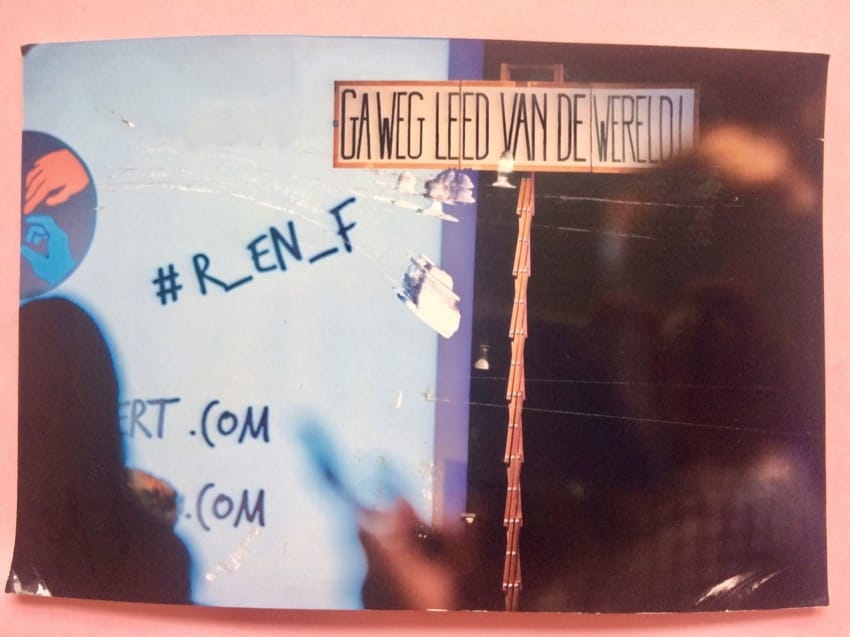 GA WEG LEED VAN DE WERELD!
# R_EN_F
ERT.COM
.COM